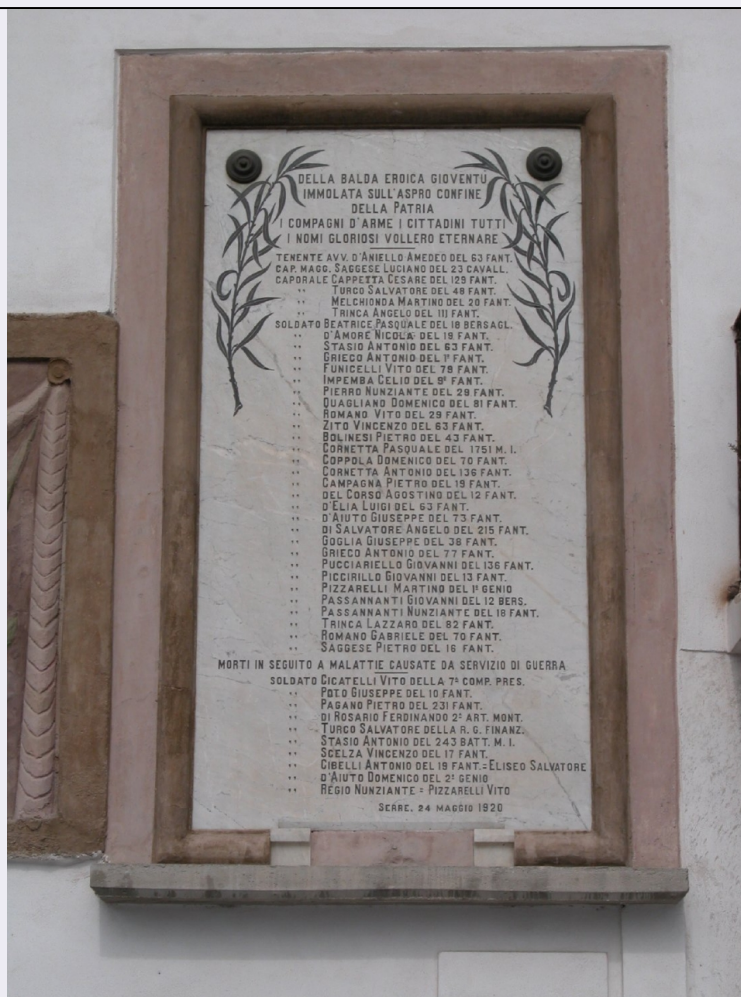 DELLA BALDA EROICA GIOVENTÙ
IMMOLATA SULL'ASPRO CONFINE
DELLA PATRIA
I COMPAGNI D'ARME I CITTADINI TUTTI
I NOMI GLORIOSI VOLLERO ETERNARE
TENENTE AVV. D'ANIELLO AMEDEO DEL 63 FANT.
CAP. MAGG. SAGGESE LUCIANO DEL 23 CAVALL.
CAPORALE CAPPETTA CESARE DEL 129 FANT.
" TURCO SALVATORE DEL 48 FANT.
" MELCHIONDA MARTINO DEL 20 FANT.
" TRINCA ANGELO DEL 111 FANT.
SOLDATO BEATRICE PASQUALE DEL 18 BERSAGL.
" D'AMORE NICOLA DEL 19 FANT.
" STASIO ANTONIO DEL 63 FANT.
" GRIECO ANTONIO DEL 1º FANT.
" FUNICELLI VITO DEL 78 FANT.
" IMPEMBA CELIO DEL 9º FANT.
" PIERRO NUNZIANTE DEL 29 FANT.
" QUAGLIANO DOMENICO DEL 81 FANT.
" ROMANO VITO DEL 29 FANT.
" ZITO VINCENZO DEL 63 FANT.
" BOLINESI PIETRO DEL 43 FANT.
" CORNETTA PASQUALE DEL 1751 M. I.
" COPPOLA DOMENICO DEL 70 FANT.
" CORNETTA ANTONIO DEL 136 FANT.
" CAMPAGNA PIETRO DEL 19 FANT.
" DEL CORSO AGOSTINO DEL 12 FANT.
" D'ELIA LUIGI DEL 63 FANT.
" D'AIUTO GIUSEPPE DEL 73 FANT.
" DI SALVATORE ANGELO DEL 215 FANT.
" GOGLIA GIUSEPPE DEL 38 FANT.
" GRIECO ANTONIO DEL 77 FANT.
" PUCCIARIELLO GIOVANNI DEL 136 FANT.
" PICCIRILLO GIOVANNI DEL 13 FANT.
" PIZZARELLI MARTINO DEL 1º GENIO
" PASSANNANTI GIOVANNI DEL 12 BERS.
" PASSANNANTI NUNZIANTE DEL 18 FANT.
" TRINCA LAZZARO DEL 82 FANT.
" ROMANO GABRIELE DEL 70 FANT.
" SAGGESE PIETRO DEL 16 FANT.
MORTI IN SEGUITO A MALATTIE CAUSATE DA SERVIZIO DI GUERRA
SOLDATO CICATELLI VITO DELLA 7ª COMP. PRES.
" POTO GIUSEPPE DEL 10 FANT.
" PAGANO PIETRO DEL 231 FANT.
" DI ROSARIO FERDINANDO 2º ART. MONT.
" TURCO SALVATORE DELLA R. G. FINANZ.
" STASIO ANTONIO DEL 243 BATT. M. I.
" SCELZA VINCENZO DEL 17 FANT.
" CIBELLI ANTONIO DEL 19 FANT.=ELISEO SALVATORE
" D'AIUTO DOMENICO DEL 2º GENIO
" REGIO NUNZIANTE = PIZZARELLI VITO
SERRE, 24 MAGGIO 1920